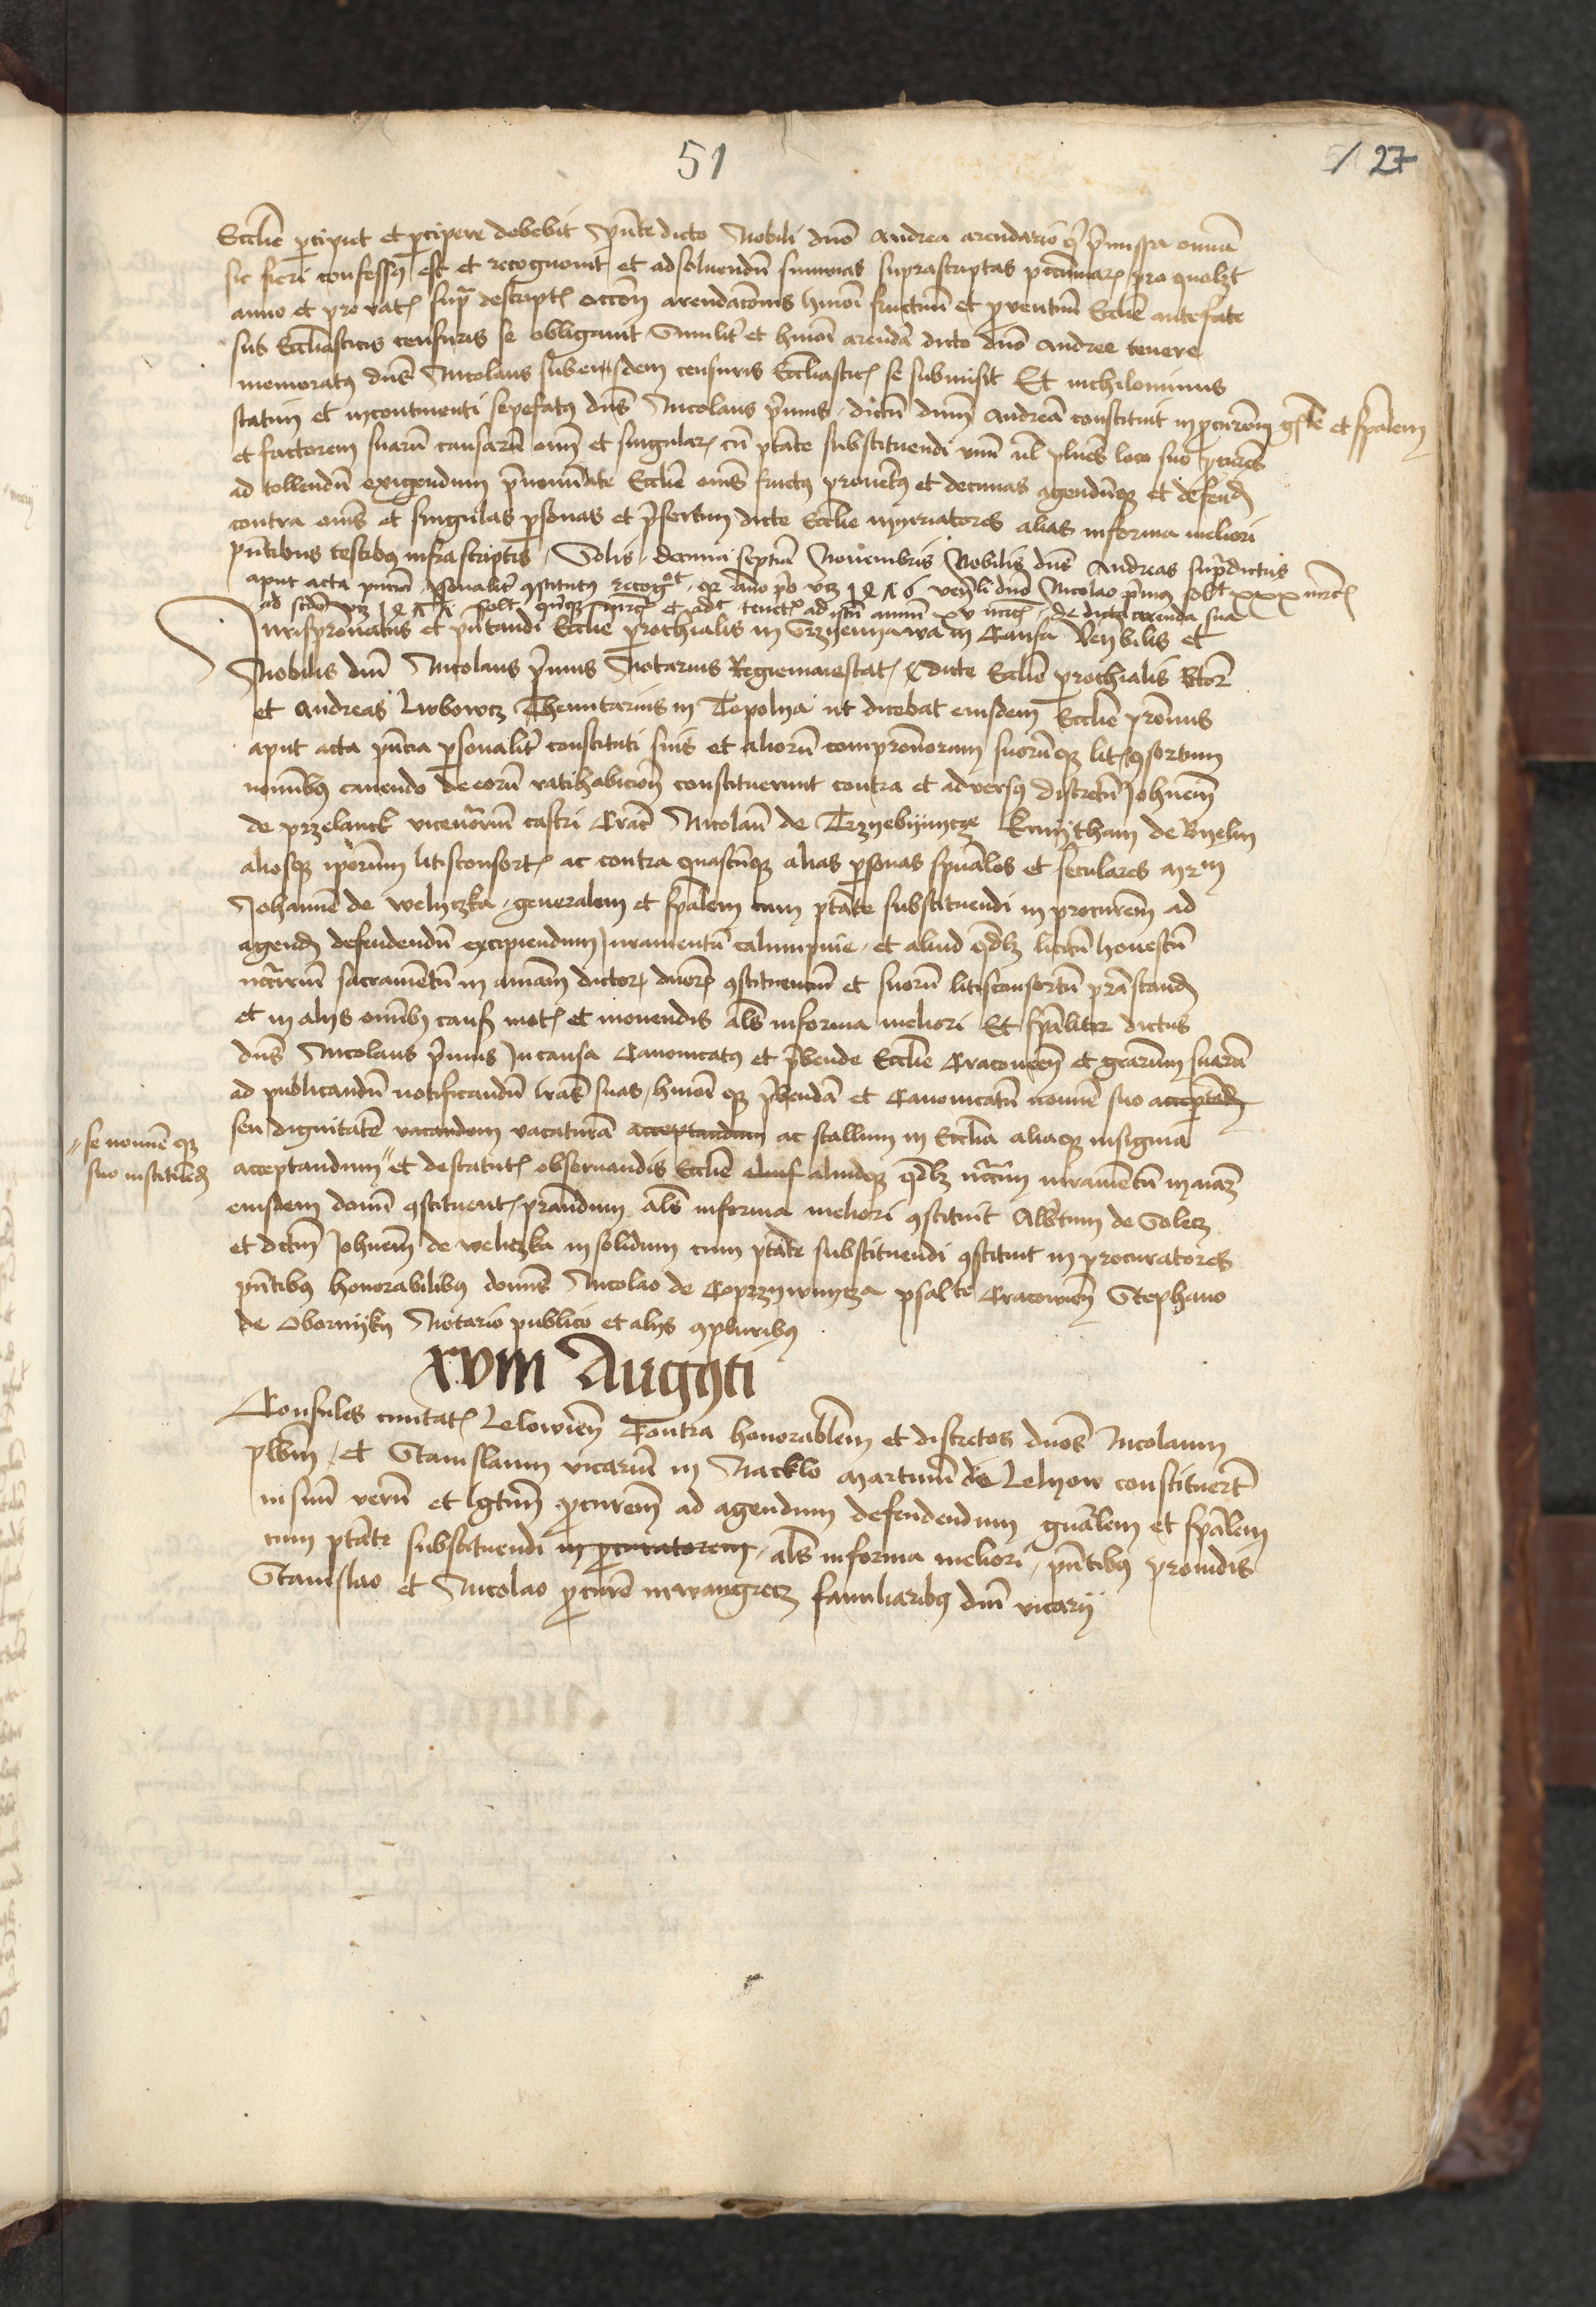 51
27
Ecclie pcipit et pcipere debebit pnte dicto Nobili dno Andrea arendario q pmissa omia
sic fieri confessus est et recognouit et ad soluendu summas suprascriptas pecuniar pro quolzt
anno et pro rat supra descript occon arendacionis hmoi fructuu et prouentuu Ecclie antefate
sub Ecclesiasticis censuris se obligauit Similit et hmoi arenda dicto dno Andree tenere
memoratus dns Nicolaus sub eiusdem censuris Ecclesiastic se submisit Et nichilominus
statim et incontinenti sepefatus dns Nicolaus pmus dictu dnm Andrea constituit in pcurem gnle et spalem
et factorem suaru causaru omi et singular cu ptate substituendi vnu vl plures loco suo
ad tollendu exigendum pnominate Ecclie omes fructus prouetus et decimas agenduq et defend
contra omes et singulas psonas et psertim dicte Ecclie iniuriatores alias in forma meliori
pntibus testibus infrascriptis Solis decima septia Nouembris Nobilis dns Andreas supdictus
aput acta pntia psonalit cstitutus recogt q anno po vz 1476 venli dno Nicolao pmus solt xxx mrc
ad scdm vz 1477 solt quinq mrc et adt tenet ad istu annu xv mrc de dicta arenda sua
Jurispronatus et pntandi Ecclie prochialis in Grzyemyawa in Causa Venbilis et
Nobilis dni Nicolaus pmus Notarius Regiemaiestat dicte Ecclie prochialis Rtor
et Andreas Lwbowcz Thenutarius in Topolya ut dicebat eiusdem Ecclie pronus
aput acta pntia psonalit constituti suis et alioru compronorum suoruq lit csortum
nominibus cauendo de eoru ratihabicion constituerunt contra et adversus discretu Johnem
de przelanck viceuicariu castri Crac Nicolau de Trzyebyenycze kmytham de Byelin
aliosq iporum litisconsort ac contra quascuq alias psonas spuales et seculares mrm
Johannem de welyczka generalem et spalem cum ptate substituendi in procurem ad
agend defendendu excipiendum Juramentu calumpnie et aliud qdlz licitu honestu
ncessriu sacramentu in aniam dictor dnor cstituentiu et suoru litisconsortu prestand
et in alys omibus caus mot et mouendis als in forma meliori Et spaliter dictus
dns Nicolaus pmus In causa Canonicatus et pbende Ecclie Cracouien et grarum suaru
ad publicandu notificandu lras suas hmoi q pbenda et Canonicatu nomine suo acceptand
seu dignitate vacandem vacatura acceptandum ac stallum in Ecclia aliaq insignia
se nomine q
suo instituend
acceptandum et de statut obseruandis Ecclie aliuf aliudq qdlz ncssriu iurametu in aiaz
eiusdem domi cstituent prandum als in forma meliori cstituit Albertum de Solecz
et dictm Johnem de welyczka in solidum cum ptate substituendi cstituit in procuratores
pntibus honorabilibus dominis Nicolao de Coprzywnycza psalte Cracowien Stephano
de Obornyky Notario publico et alys cpluribus
xviii Augusti
Consules ciuitat Lelowien Contra honorablem et discretos dnos Nicolaum
plbm et Stanislaum vicariu in Nacklo Martinu de Lelyow constituert
in suu veru et lgtim pcurem ad agendum defendendum gnalem et spalem
cum ptate substituendi in pcuratorem als in forma meliori pntibus prouidis
Stanislao et Nicolao pcure familiaribus dni vicarij